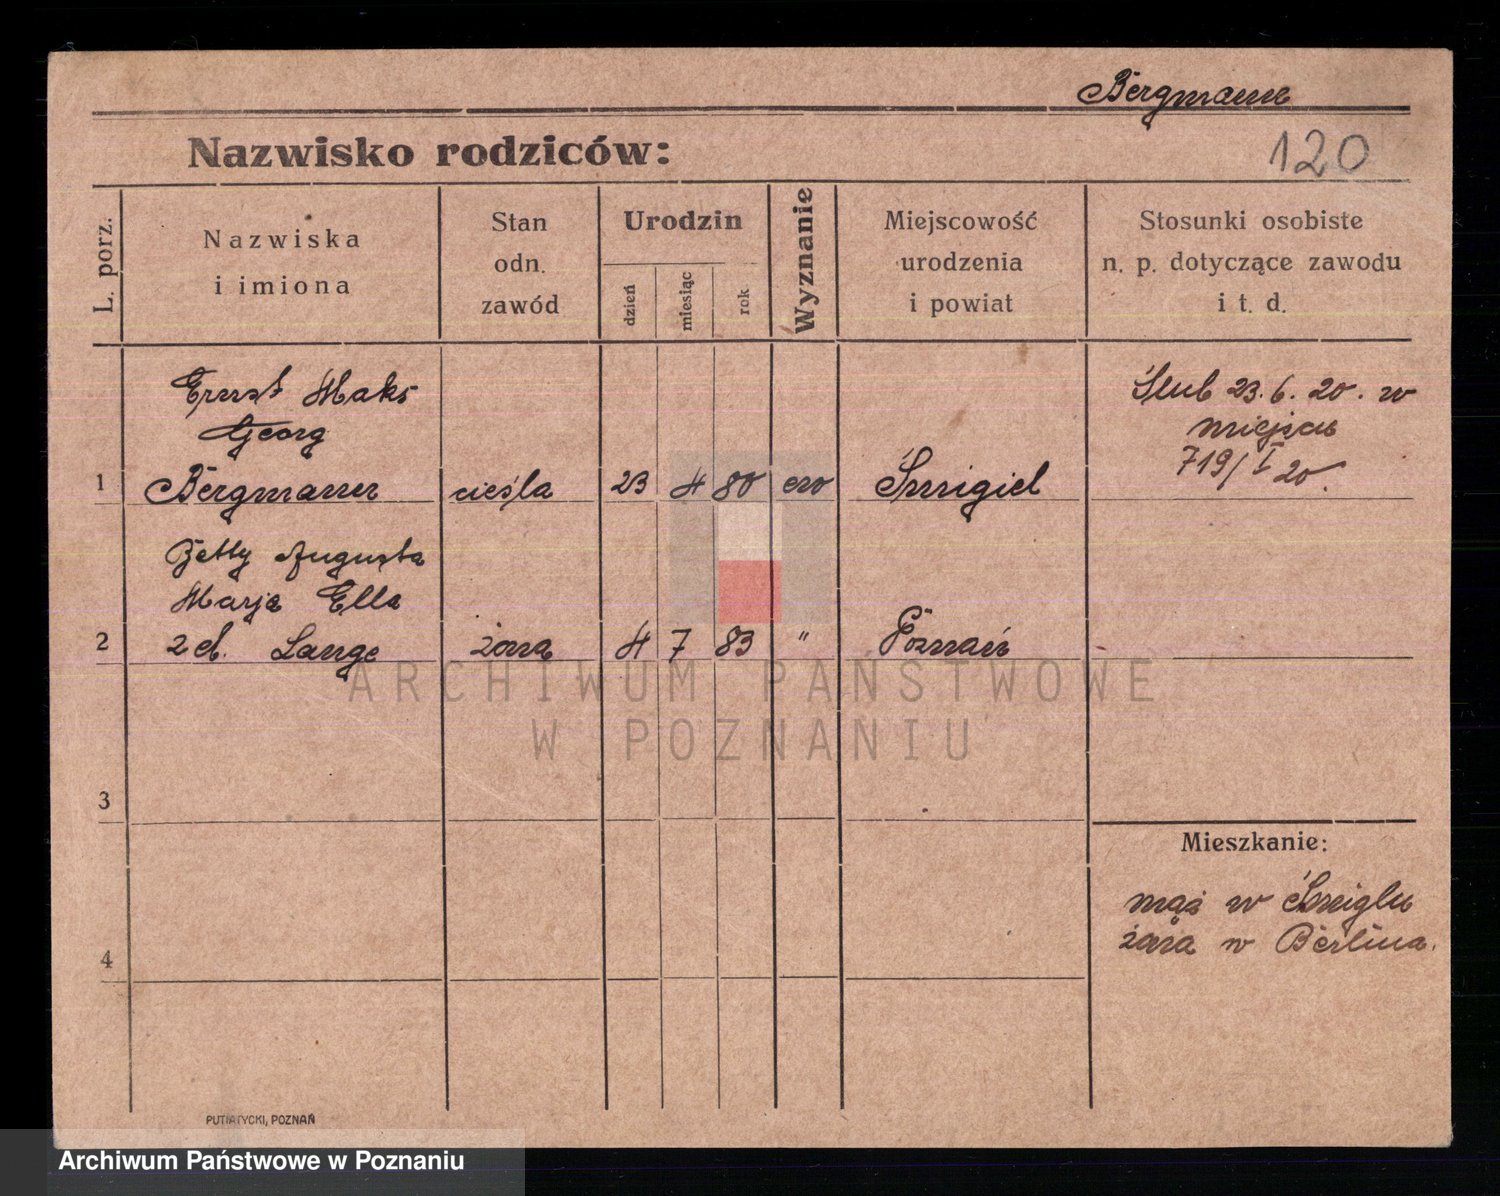 Bergmann
Nazwisko rodziców:
120
L. porz.
Nazwiska
i imiona
Stan
odn.
zawód
Urodzin
dzień
miesiąc
rok
Wyznanie
Miejscowość
urodzenia
i powiat
Stosunki osobiste
n. p. dotyczące zawodu
i t. d.
Ernst Maks
Georg
1 Bergmann cieśla 23 4 80 ew Śmigiel
Ślub 23.6.20. w
miejscu
719/I 20.
Betty Augusta
Marja Ella
2 zd. Lange żona 4 7 83 " Poznań
ARCHIWUM PAŃSTWOWE
W POZNANIU
3
Mieszkanie:
mąż w Śmiglu
żona w Berlina.
4
PUTIATYCKI, POZNAŃ
Archiwum Państwowe w Poznaniu